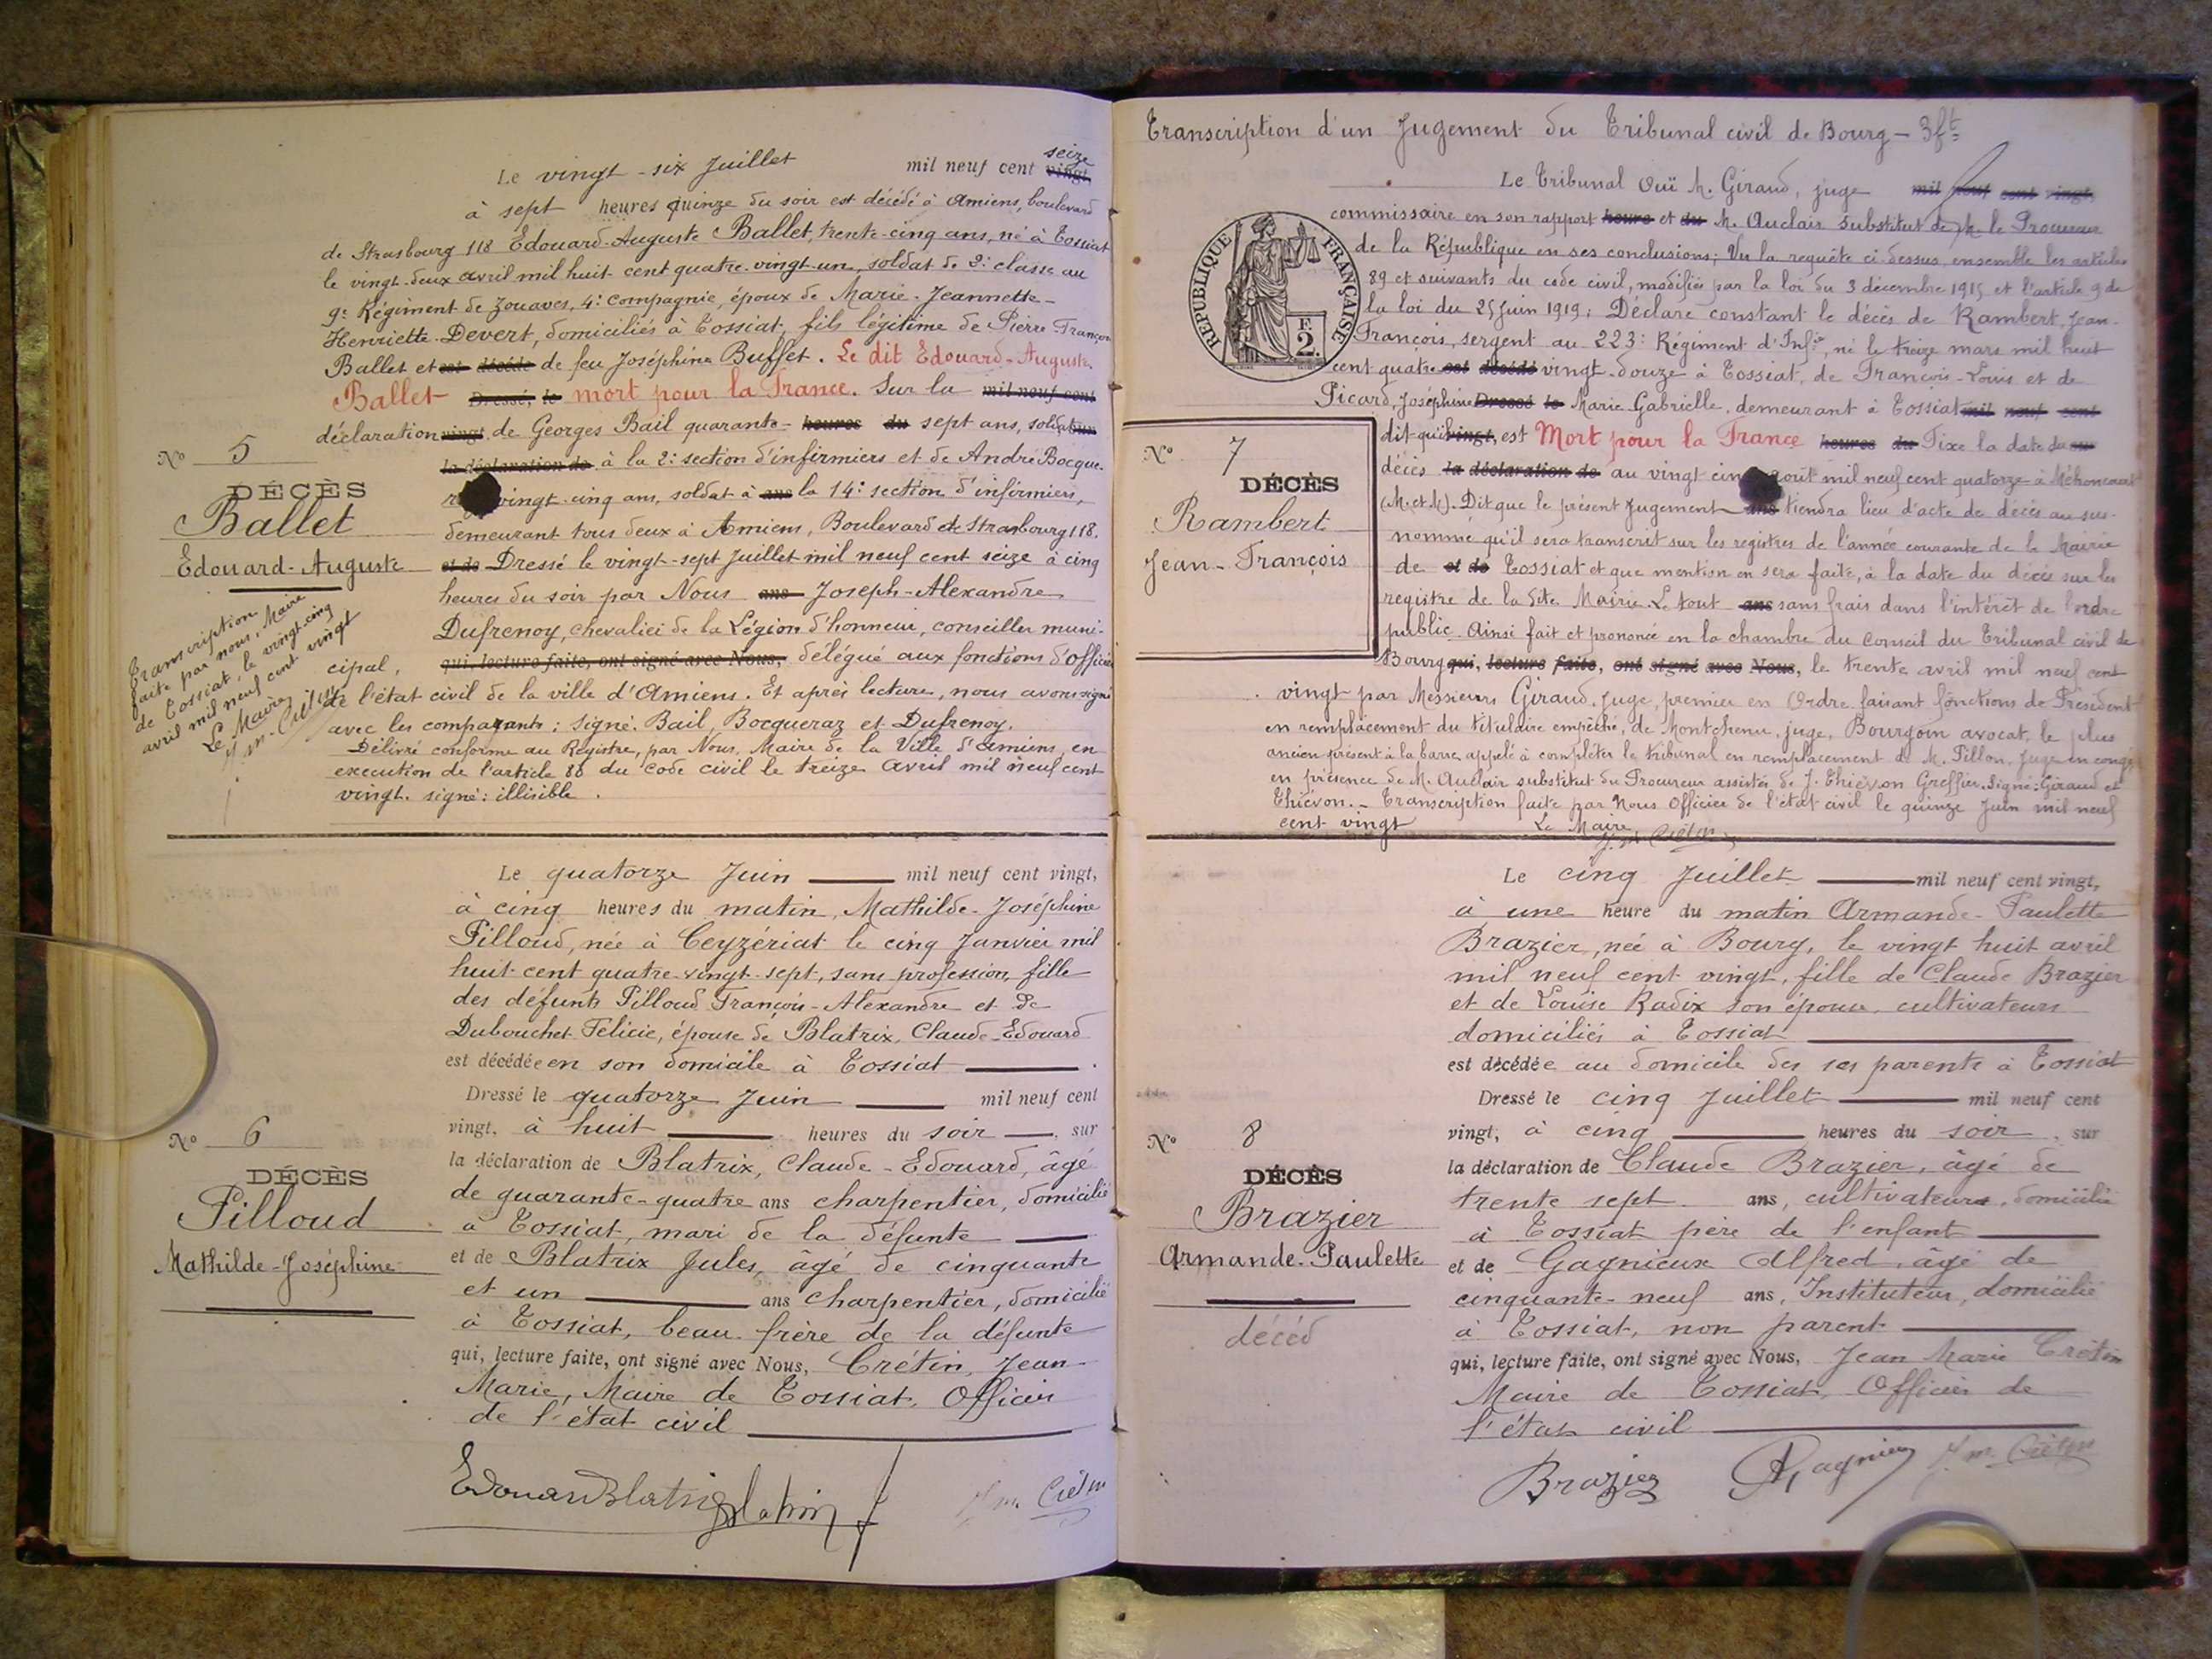 Le vingt-six Juillet mil neuf cent vingt, seize
à sept heures quinze du soir est décédé à Amiens, boulevard
de Strasbourg 118 Edouard-Auguste Ballet, trente-cinq ans, né à Tossiat
le vingt-deux avril mil huit cent quatre-vingt-un, soldat de 2e classe au
9e Régiment de Zouaves, 4e Compagnie, époux de Marie-Jeannette-
Henriette Devert, domiciliés à Tossiat, fils légitime de Pierre François
Ballet et est décédé de feu Joséphine Buffet. Le dit Edouard-Auguste
Ballet Dressé, le mort pour la France. Sur la mil neuf cent
déclaration vingt, de Georges Bail quarante- heures du sept ans, soldat
la déclaration de à la 2e section d'infirmiers et de André Bocque-
vingt-cinq ans, soldat à ans la 14e section d'infirmiers,
demeurant tous deux à Amiens, Boulevard de Strasbourg 118.
et de Dressé le vingt-sept Juillet mil neuf cent seize à cinq
heures du soir par Nous ans Joseph-Alexandre
Dufrenoy, chevalier de la Légion d'honneur, conseiller muni-
cipal, qui, lecture faite, ont signé avec Nous, délégué aux fonctions d'officier
de l'état civil de la ville d'Amiens. Et après lecture, nous avons signé
avec les comparants: signé: Bail, Bocqueraz et Dufrenoy.
Délivré conforme au Registre, par Nous, Maire de la Ville d'Amiens, en
execution de l'article 80 du code civil le treize Avril mil neuf cent
vingt. signé: illisible.
N° 5
DÉCÈS
Ballet
Edouard-Auguste
Transcription
faite par nous, Maire
de Tossiat, le vingt-cinq
avril mil neuf cent vingt
Le Maire
J. M. Crétin
Le quatorze Juin mil neuf cent vingt,
à cinq heures du matin, Mathilde-Joséphine
Pilloud, née à Ceyzériat le cinq Janvier mil
huit cent quatre-vingt-sept, sans profession, fille
des défunts Pilloud François-Alexandre et de
Dubouchet Félicie, épouse de Blatrix, Claude-Edouard
est décédée en son domicile à Tossiat.
Dressé le quatorze Juin mil neuf cent
vingt, à huit heures du soir, sur
la déclaration de Blatrix, Claude-Edouard, âgé
de quarante-quatre ans charpentier, domicilié
à Tossiat, mari de la défunte
et de Blatrix Jules, âgé de cinquante
et un ans charpentier, domicilié
à Tossiat, beau-frère de la défunte
qui, lecture faite, ont signé avec Nous, Crétin, Jean-
Marie, Maire de Tossiat, Officier
de l'état civil
N° 6
DÉCÈS
Pilloud
Mathilde-Joséphine
Edouard Blatrix Blatrix J. M. Crétin
Transcription d'un Jugement du Tribunal civil de Bourg - 3ft
Le Tribunal Ouï M. Giraud, juge mil neuf cent vingt,
commissaire en son rapport heure et du M. Auclair Substitut de M. le Procureur
de la République en ses conclusions; Vu la requête ci-dessus, ensemble les articles
89 et suivants du code civil, modifiés par la loi du 3 décembre 1915 et l'article 9 de
la loi du 25 Juin 1919: Déclare constant le décès de Rambert, Jean-
François, sergent au 223e Régiment d'Infie, né le treize mars mil huit
cent quatre est décédé vingt-douze à Tossiat, de François-Louis et de
Picard, Joséphine Dressé le Marie Gabrielle, demeurant à Tossiat mil neuf cent
dit qu'il vingt, est Mort pour la France heures du Fixe la date du sur
décès la déclaration de au vingt cinq août mil neuf cent quatorze à Méhoncourt
(M. et M). Dit que le présent Jugement ans tiendra lieu d'acte de décès au sus-
nommé qu'il sera transcrit sur les registres de l'année courante de la Mairie
de et de Tossiat et que mention en sera faite, à la date du décès sur les
registre de la dite Mairie. Le tout ans sans frais dans l'intérêt de l'ordre
public. Ainsi fait et prononcé en la chambre du Conseil du Tribunal civil de
Bourg qui, lecture faite, ont signé avec Nous, le trente avril mil neuf cent
vingt par Messieurs Giraud, Juge, premier en Ordre faisant fonctions de Président
en remplacement du titulaire empêché, de Montchenu, juge, Bourgoin avocat, le plus
ancien présent à la barre, appelé à compléter le tribunal en remplacement de M. Pillon, Juge en congé,
en présence de M. Auclair substitut du Procureur assistés de J. Thiévon Greffier. Signé: Giraud et
Thiévon. - Transcription faite par Nous Officier de l'état civil le quinze Juin mil neuf
cent vingt Le Maire, J. M. Crétin
RÉPUBLIQUE FRANÇAISE
F.
2.
N° 7
DÉCÈS
Rambert
Jean-François
Le cinq Juillet mil neuf cent vingt,
à une heure du matin Armande-Paulette
Brazier, née à Bourg, le vingt huit avril
mil neuf cent vingt, fille de Claude Brazier
et de Louise Radix son épouse, cultivateurs
domiciliés à Tossiat
est décédée au domicile des ses parents à Tossiat
Dressé le cinq Juillet mil neuf cent
vingt, à cinq heures du soir, sur
la déclaration de Claude Brazier, âgé de
trente sept ans, cultivateur, domicilié
à Tossiat père de l'enfant
et de Gagnieux Alfred, âgé de
cinquante-neuf ans, Instituteur, domicilié
à Tossiat, non parent
qui, lecture faite, ont signé avec Nous, Jean Marie Crétin
Maire de Tossiat, Officier de
l'état civil
N° 8
DÉCÈS
Brazier
Armande-Paulette
décéd
Brazier A. Gagnieux J. M. Crétin